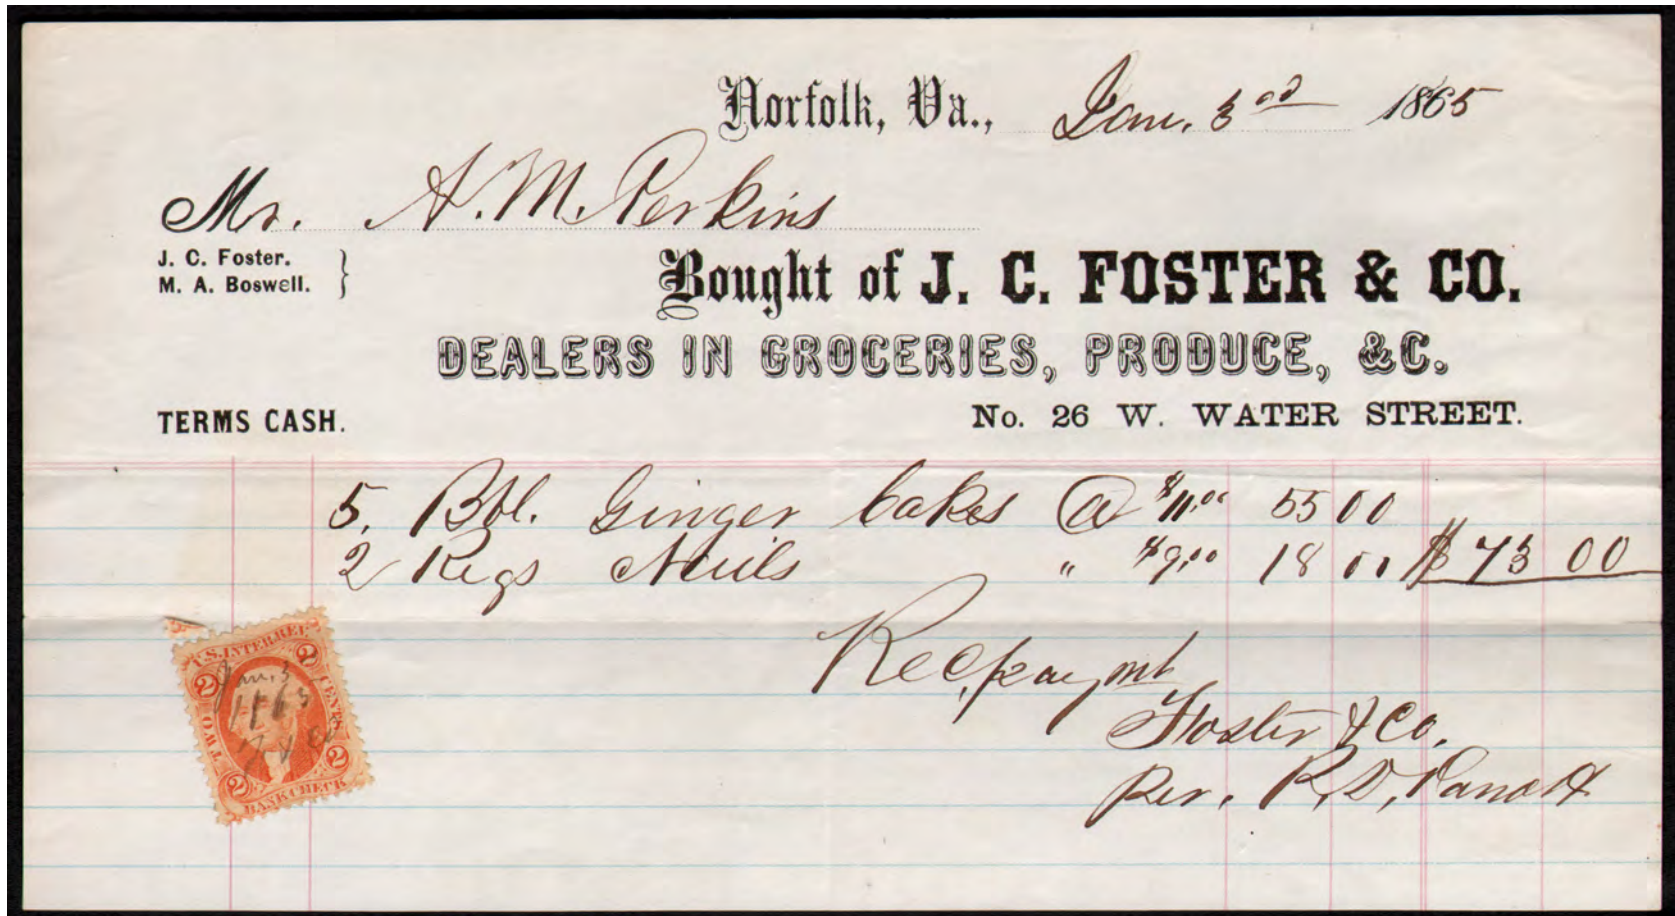 Norfolk, Va., Jan. 3rd 1865
Mr. A. M. Perkins
J. C. Foster.
M. A. Boswell.
Bought of J. C. FOSTER & CO.
DEALERS IN GROCERIES, PRODUCE, &C.
TERMS CASH.
No. 26 W. WATER STREET.
5. Bbl. Ginger Cakes @ $11.00 55 00
2 Kegs Nails " $9.00 18 00 $73 00
Rec. paymt
Foster & Co.
Per. R. D.
U.S. INTER. REV.
Jan. 3
1865
F & Co
TWO CENTS
2 2 2 2
BANK CHECK